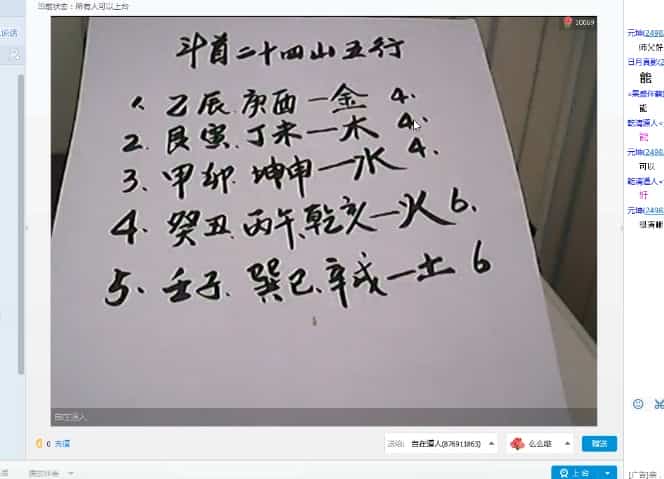 当前状态：所有人可以上台
10069
斗首二十四山五行
1、乙辰、庚酉一金 4.
2、艮寅、丁未一木 4.
3、甲卯、坤申一水 4.
4、癸丑、丙午、乾亥一火 6.
5、壬子、巽巳、辛戌一土 6
自在道人
0 充值
送给： 自在道人(876911863)
么么哒
赠送
上台
元坤(2498
师父好
能
能
乾清道人
能
元坤(2498
可以
乾清道人
好
元坤(2498
很清晰
[广告]亲，